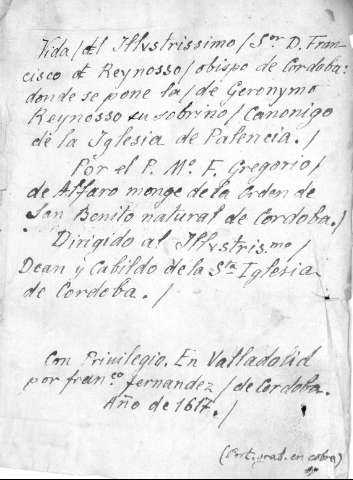 Vida/del Illvstrissimo/Sor D. Fran-
cisco de Reynosso/obispo de Cordoba:
donde se pone la/de Geronymo
Reynosso su sobrino/Canonigo
de la Iglesia de Palencia./
Por el P. Mº. F. Gregorio/
de Alfaro monge de la Orden de
San Benito natural de Cordoba./
Dirigido al Illvstris.mo/
Dean y Cabildo de la Sta Iglesia
de Cordoba./
Con Privilegio. En Valladolid
por franco fernandez/de Cordoba.
Año de 1617./
(Port. grab. en cobre)